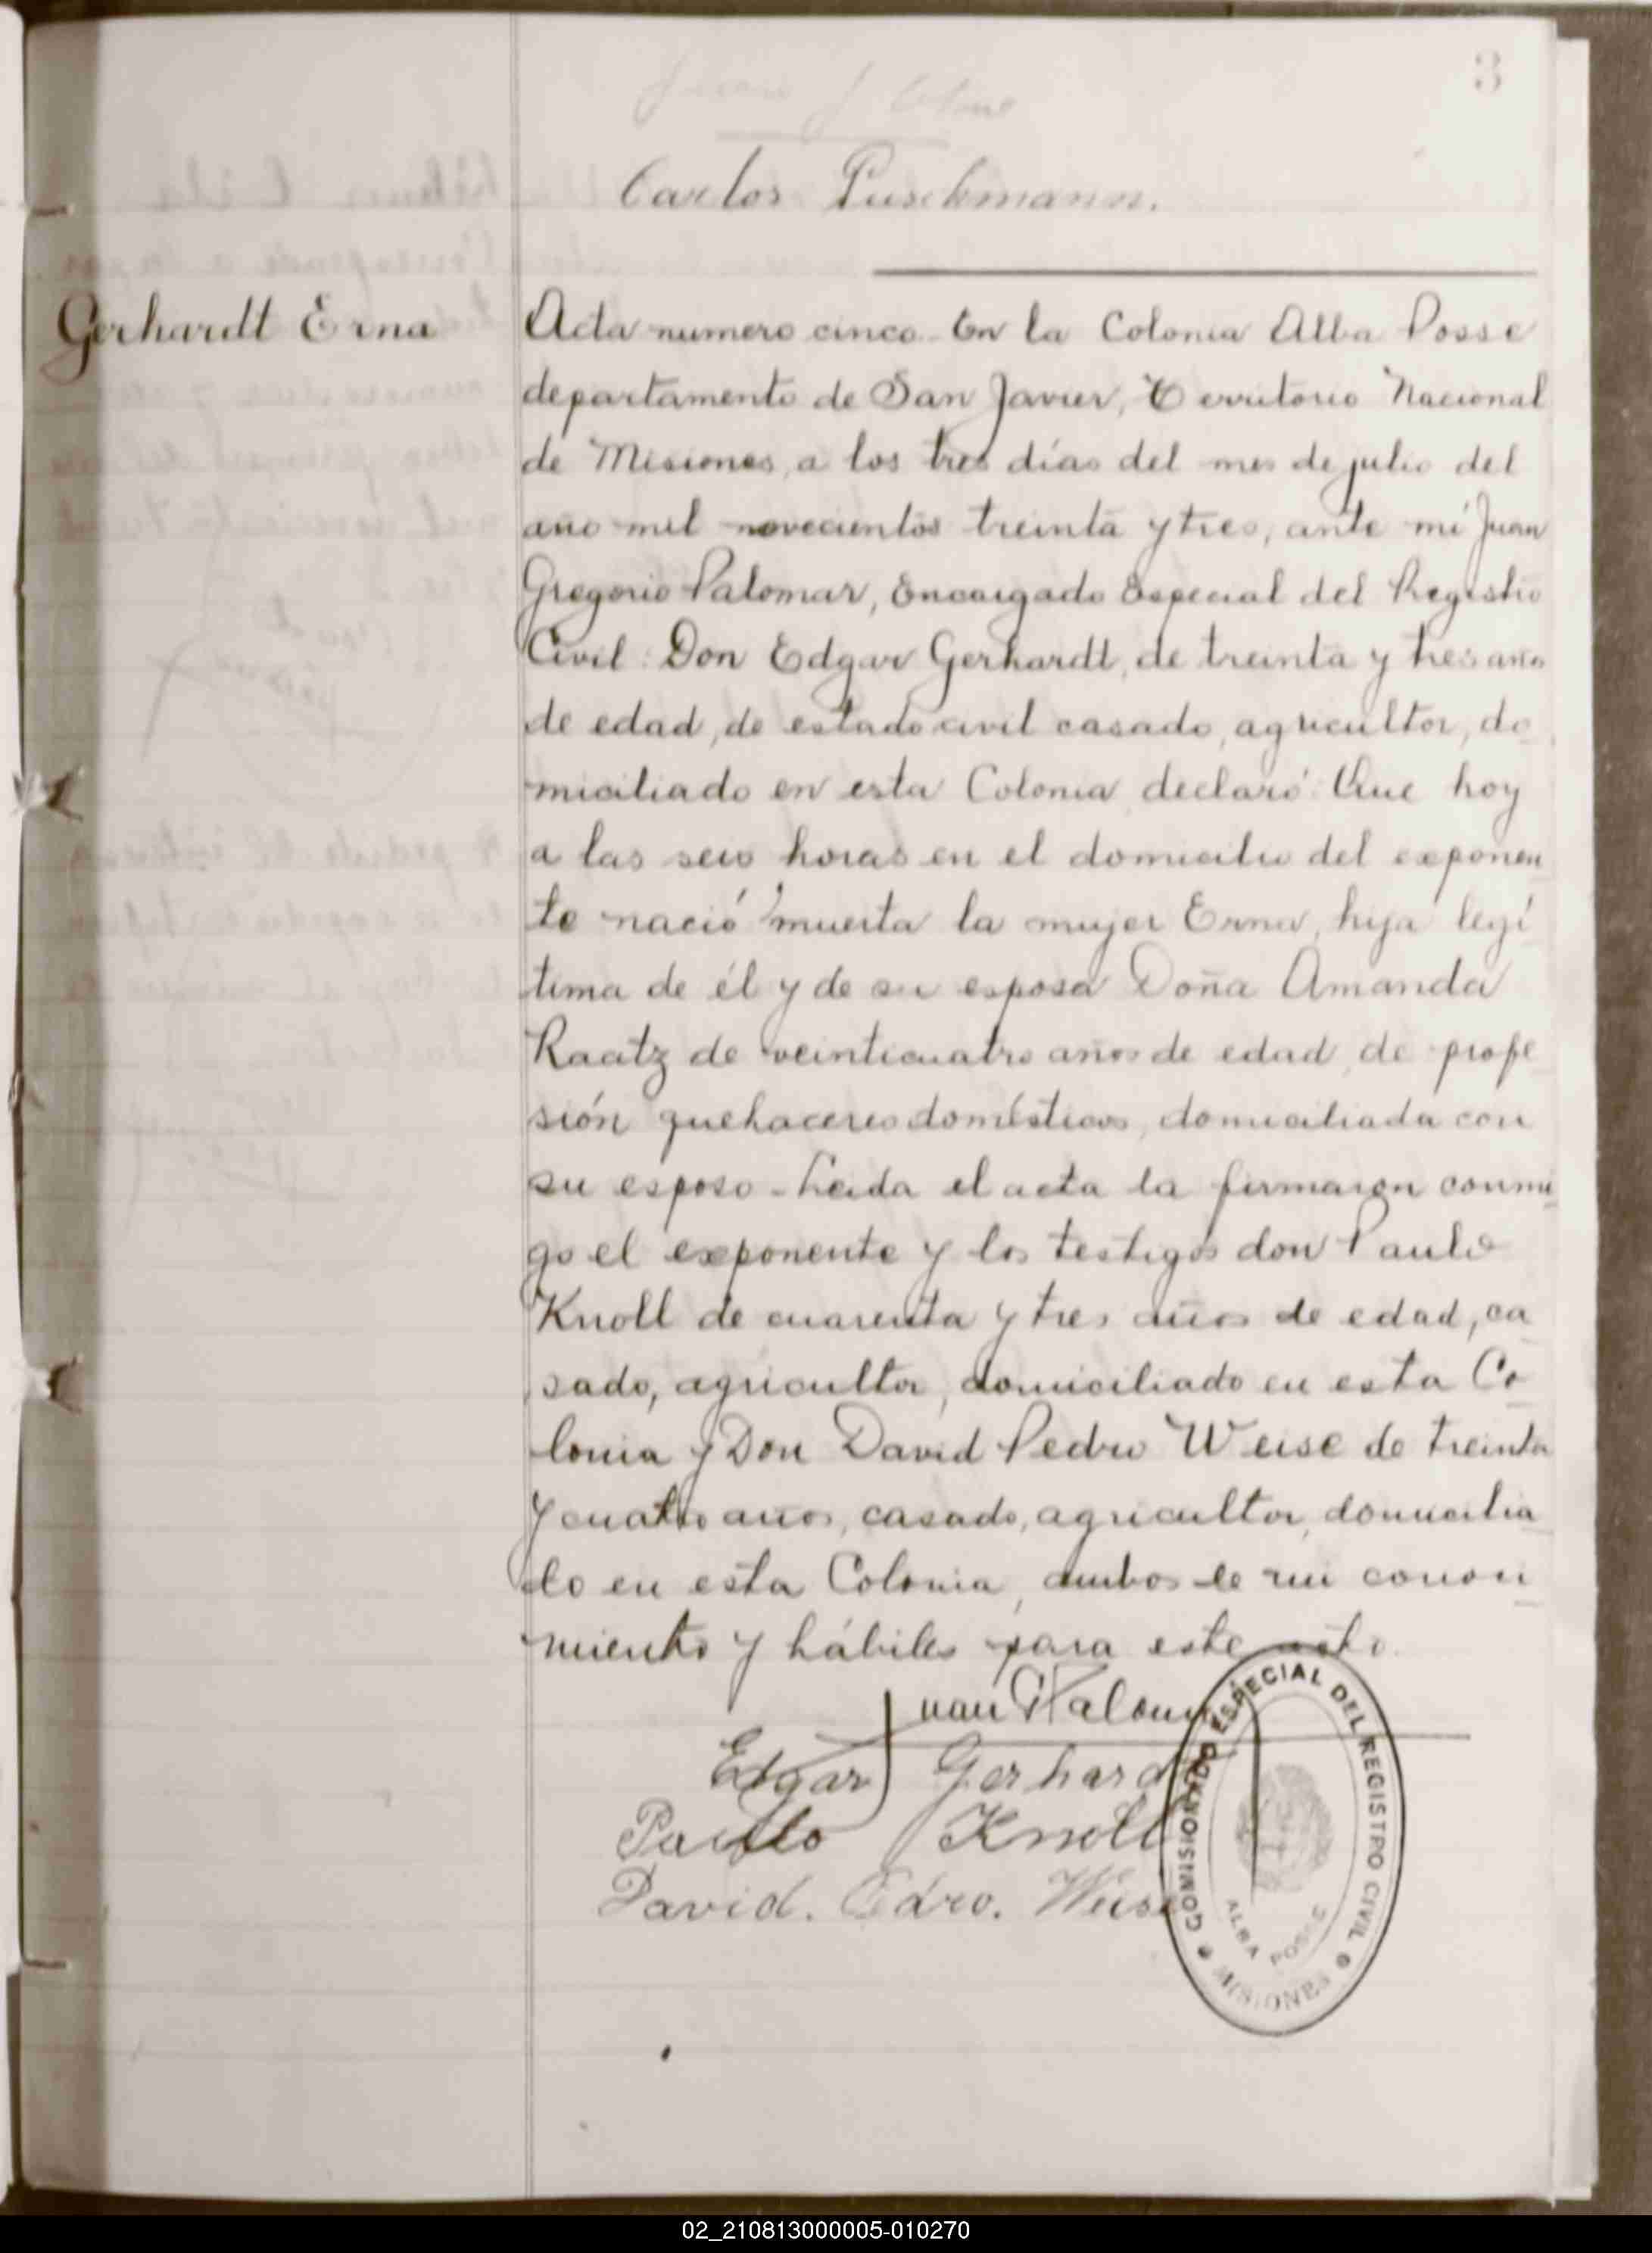 3
Carlos Puschmann.
Gerhardt Erna
Acta numero cinco. En la Colonia Alba Posse
departamento de San Javier, Territorio Nacional
de Misiones, a los tres días del mes de julio del
año mil novecientos treinta y tres, ante mí Juan
Gregorio Palomar, Encargado Especial del Registro
Civil: Don Edgar Gerhardt, de treinta y tres años
de edad, de estado civil casado, agricultor, do
miciliado en esta Colonia, declaró: Que hoy
a las seis horas en el domicilio del exponen
te nació muerta la mujer Erna, hija legí
tima de él y de su esposa Doña Amanda
Raatz de veinticuatro años de edad, de profe
sión quehaceres domésticos, domiciliada con
su esposo - Leida el acta la firmaron conmi
go el exponente y los testigos don Paulo
Knoll de cuarenta y tres años de edad, ca
sado, agricultor, domiciliado en esta Co
lonia y Don David Pedro Weise de treinta
y cuatro años, casado, agricultor, domicilia
do en esta Colonia, ambos de mi conoci
miento y hábiles para este acto.
Juan G Palomar
Edgar Gerhardt
Paulo Knoll
David. Edro. Weise
COMISIONADO ESPECIAL DEL REGISTRO CIVIL
ALBA POSSE
MISIONES
02_210813000005-010270